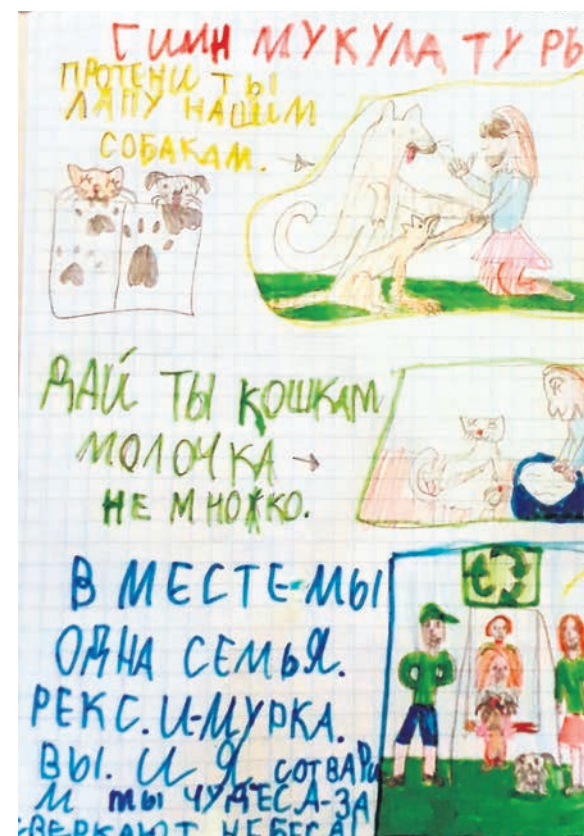 ГИМН МУКУЛАТУРЫ
ПРОТЕНИ ТЫ
ЛАПУ НАШИМ
СОБАКАМ.
ДАЙ ТЫ КОШКАМ
МОЛОЧКА
НЕ МНОЖКО.
ВМЕСТЕ-МЫ
ОДНА СЕМЬЯ.
РЕКС.И-МУРКА.
ВЫ. И Я СОТВАРИ
М МЫ ЧУДЕСА-ЗА
СВЕРКАЮТ НЕБЕСА!